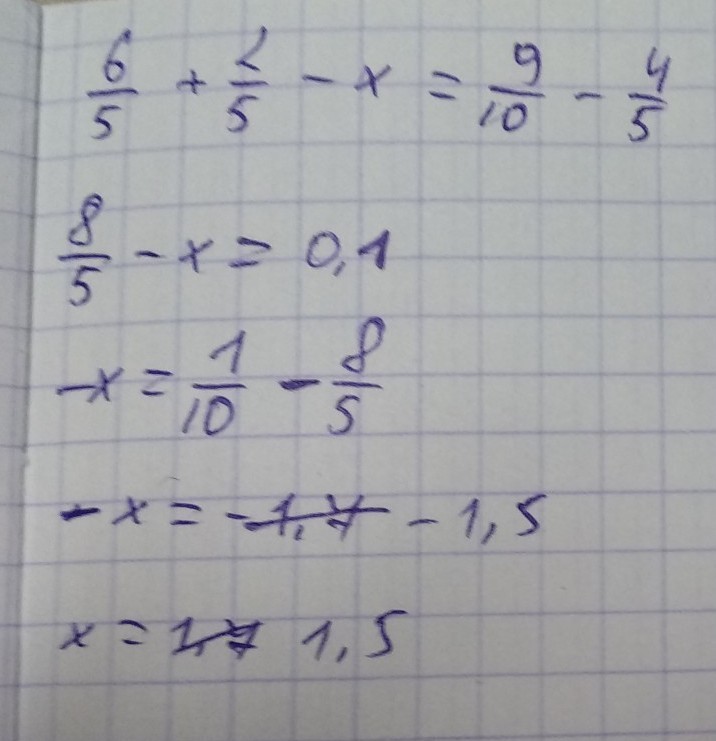 6/5 + 2/5 - x = 9/10 - 4/5
8/5 - x = 0,1
-x = 1/10 - 8/5
-x = - ~~1,7~~ - 1,5
x = ~~1,7~~ 1,5